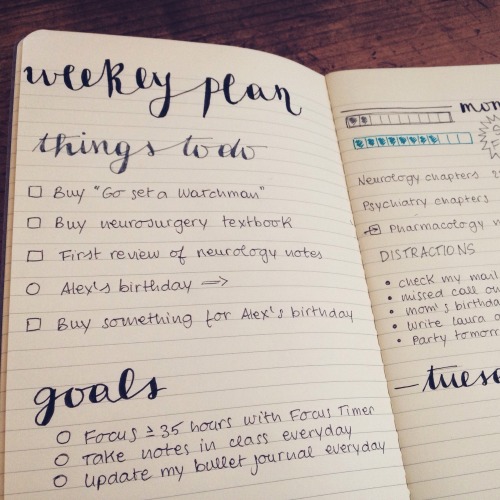 weekly plan
things to do
□ Buy "Go set a Watchman"
□ Buy neurosurgery textbook
□ First review of neurology notes
○ Alex's birthday ⇒
□ Buy something for Alex's birthday
goals
○ Focus ≥ 35 hours with Focus Timer
○ Take notes in class everyday
○ Update my bullet journal everyday
Neurology chapters
Psychiatry chapters
Pharmacology
DISTRACTIONS
• check my mail
• missed call
• mom's
• write laura
• Party